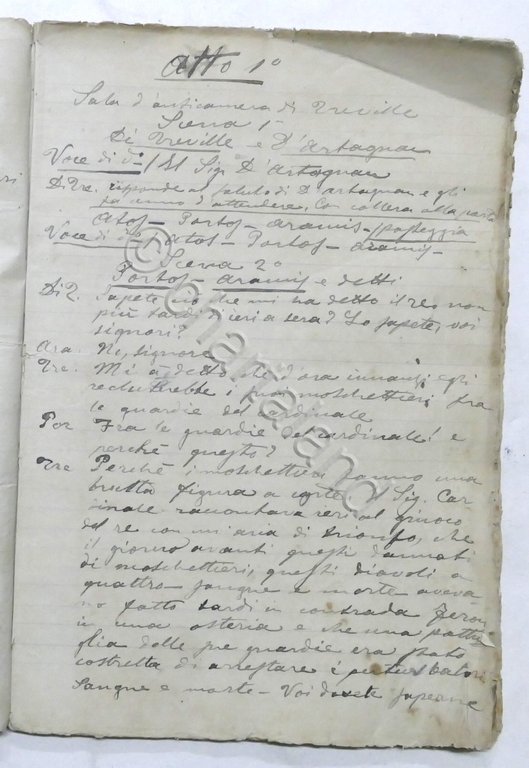 Atto 1º
Sala d'anticamera di Treville
Scena 1ª
Di Treville e D'Artagnan
Voce di d. / Il Sig. D'Artagnan
Di Tre. risponde al saluto di D'artagnan e gli
fa cenno d'attendere, Con collera alla porta
Atos - Portos - Aramis / passeggia
Voce di d. Atos - Portos - Aramis -
Scena 2ª
Portos - Aramis e detti
Di T. Sapete ciò che mi ha detto il re, non
più tardi di ieri a sera? Lo sapete, voi
signori?
Ara. No, signore
Tre. Mi à detto che d'ora innanzi egli
recluterebbe i suoi moschettieri fra
le guardie del cardinale
Por Fra le guardie del cardinale! e
perchè questo?
Tre Perchè i moschettieri fanno una
brutta figura a corte. Il Sig. Car-
dinale raccontava ieri al giuoco
del re con un'aria di trionfo, che
il giorno avanti questi dannati
di moschettieri, questi diavoli a
quattro - sangue e morte aveva-
no fatto tardi in contrada Ferou
in una osteria e che una pattu
glia delle sue guardie era stata
costretta di arrestare i perturbatori -
Sangue e morte - Voi dovete saperne
© Chartaland